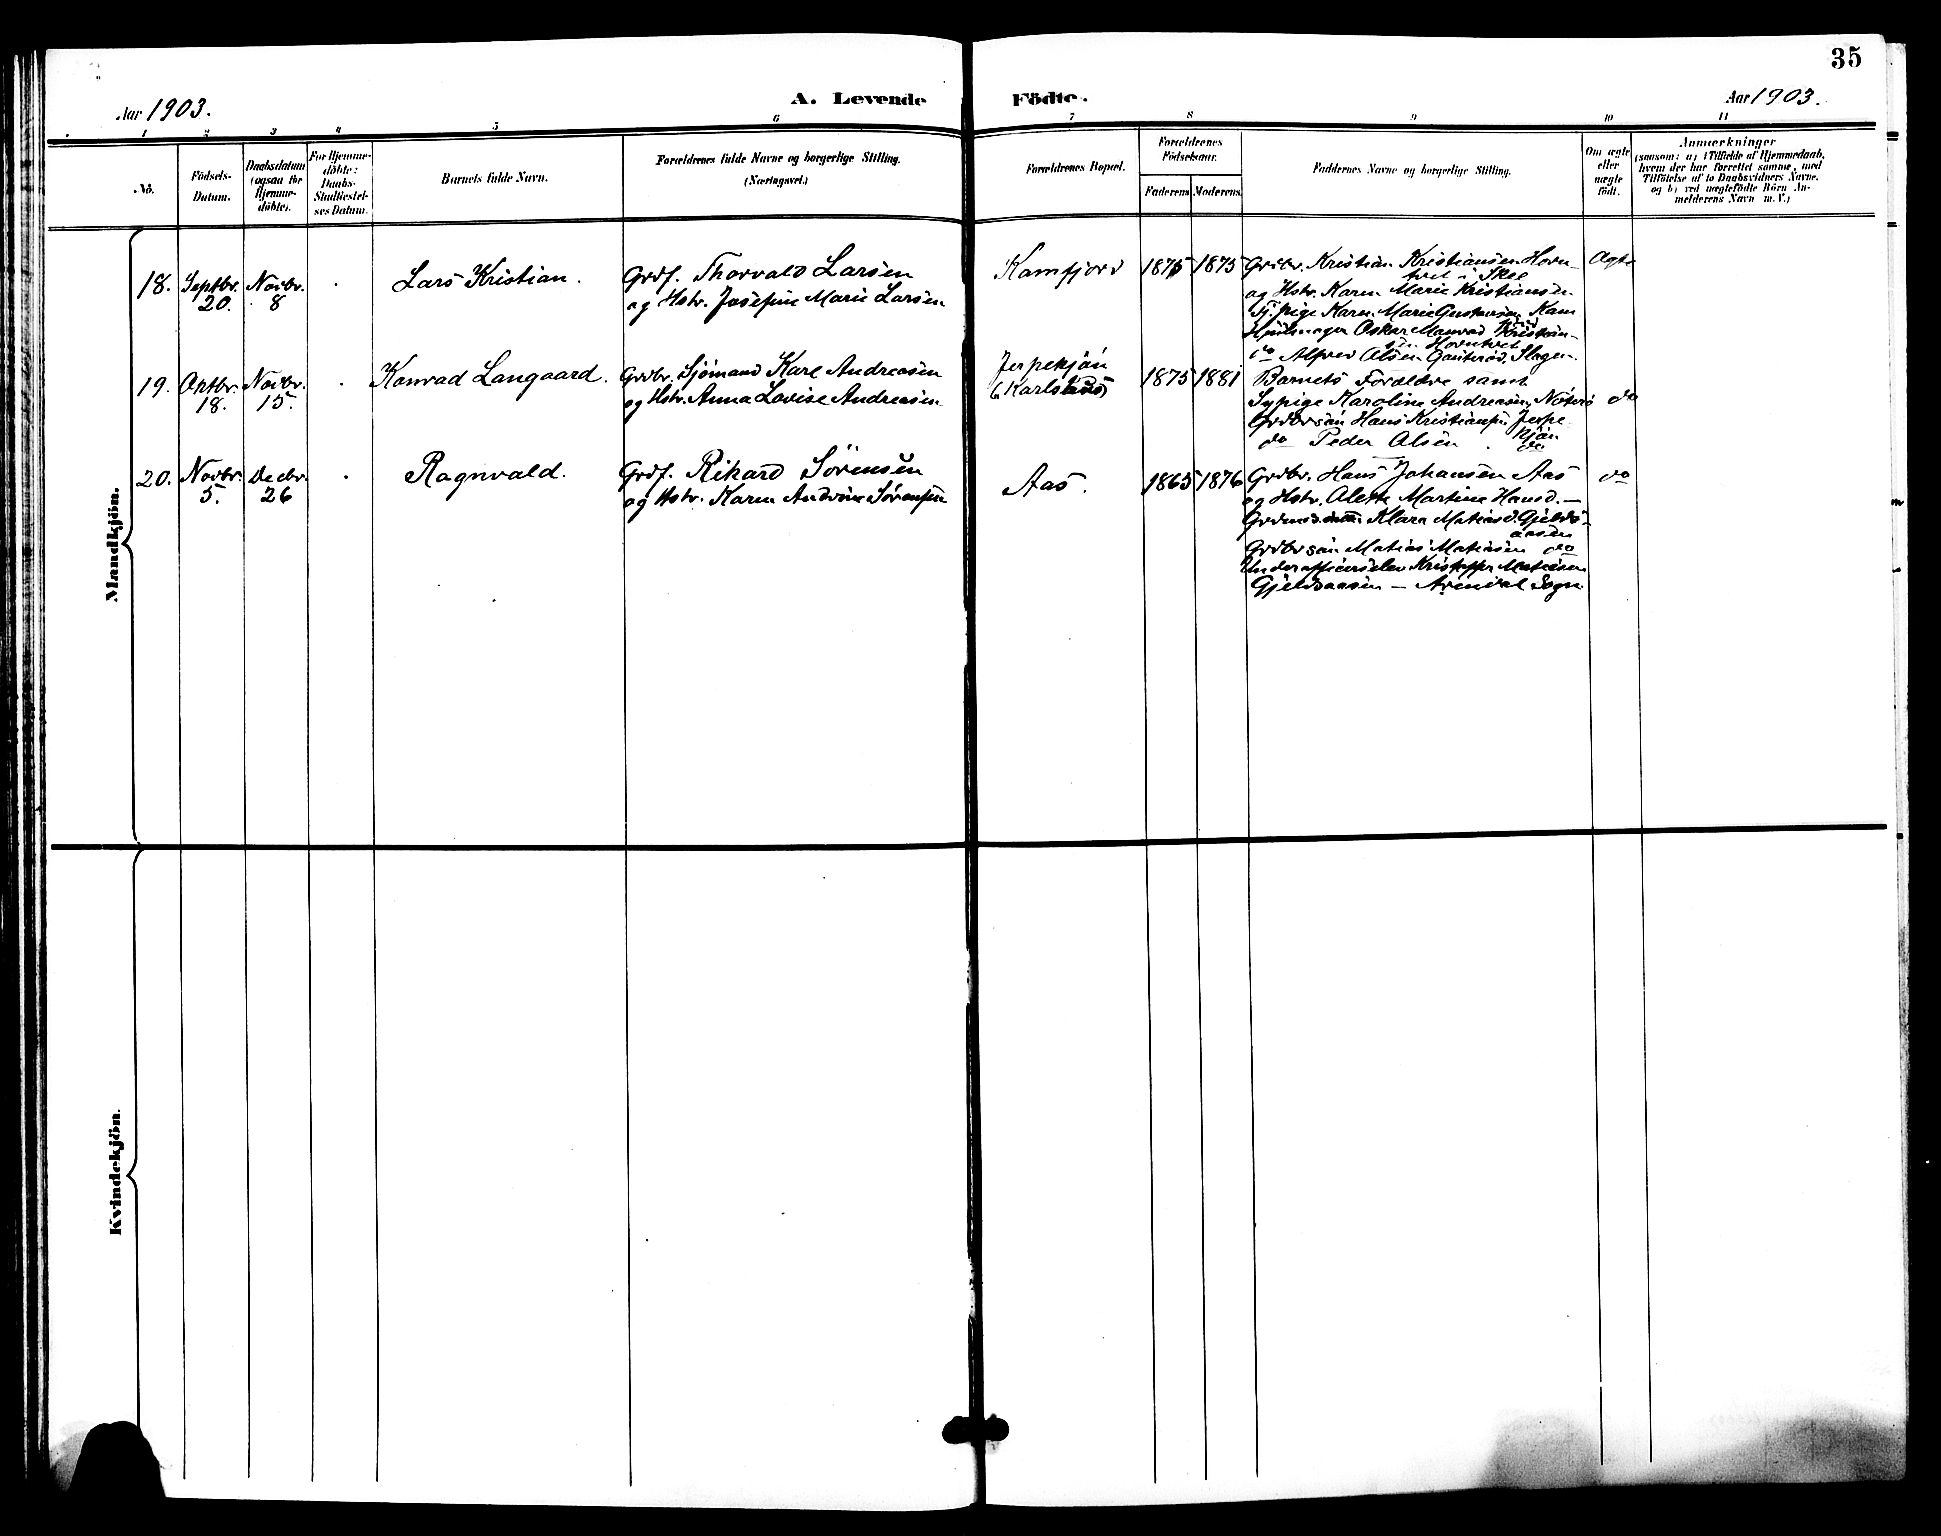 35
Aar 1903.
A. Levende Födte.
Aar 1903.
1 2 3 4 5 6 7 8 9 10 11
No.
Födsels-
Datum.
Daabsdatum
(ogsaa for
Hjemme-
döbte).
For Hjemme-
döbte:
Daabs-
Stadfæstel-
ses Datum.
Barnets fulde Navn.
Forældrenes fulde Navne og borgerlige Stilling.
(Næringsvei.)
Forældrenes Bopæl.
Forældrenes
Födselsaar.
Faderens. Moderens.
Faddernes Navne og borgerlige Stilling.
Om ægte
eller
uægte
født.
Anmærkninger
(saasom: a) i Tilfælde af Hjemmedaab,
hvem der har forrettet samme, med
Tilföielse af to Daabsvidners Navne.
og b) ved uægtefödte Börn An-
melderens Navn m. V.)
Mandkjön.
18.
Septbr.
20.
Novbr.
8
Lars Kristian.
Grdf. Thorvald Larsen
og Hstr. Josefine Marie Larsen
Kamfjord
1875
1875
Grdbr. Kristian Kristiansen Horn-
tvet i Skee
og Hstr. Karen Marie Kristiansen
Sypige Karen Marie Gustavsen Kam
Hjulmager Oskar Manvad Kristian-
sen Horntvet
do Alfred Olsen Slagen.
Ægte
19.
Oktbr.
18.
Novbr.
15.
Konrad Langaard.
Grdbr. Sjömand Karl Andreasen
og Hstr. Anna Lovise Andreasen
Jerpekjön
(Karlshus)
1875
1881
Barnets Forældre samt
Sypige Karoline Andreasen, Nöterö
Grdbrsön Hans Kristiansen Jerpe-
kjön
do Peder Olsen do
do
20.
Novbr.
5.
Decbr.
26
Ragnvald.
Grdf. Rikard Sörensen
og Hstr. Karen Andrine Sörensen
Aas.
1865
1876
Grdbr. Hans Johansen Aas
og Hstr. Alette Martine Hansd. —
Klara Matiasd. Gjelds-
aasen
Grdbrsön Matias Matiasen do
Underofficerselev Kristoffer Matiasen
Gjeldsaasen — Arendal Sogn
do
Kvindekjön.